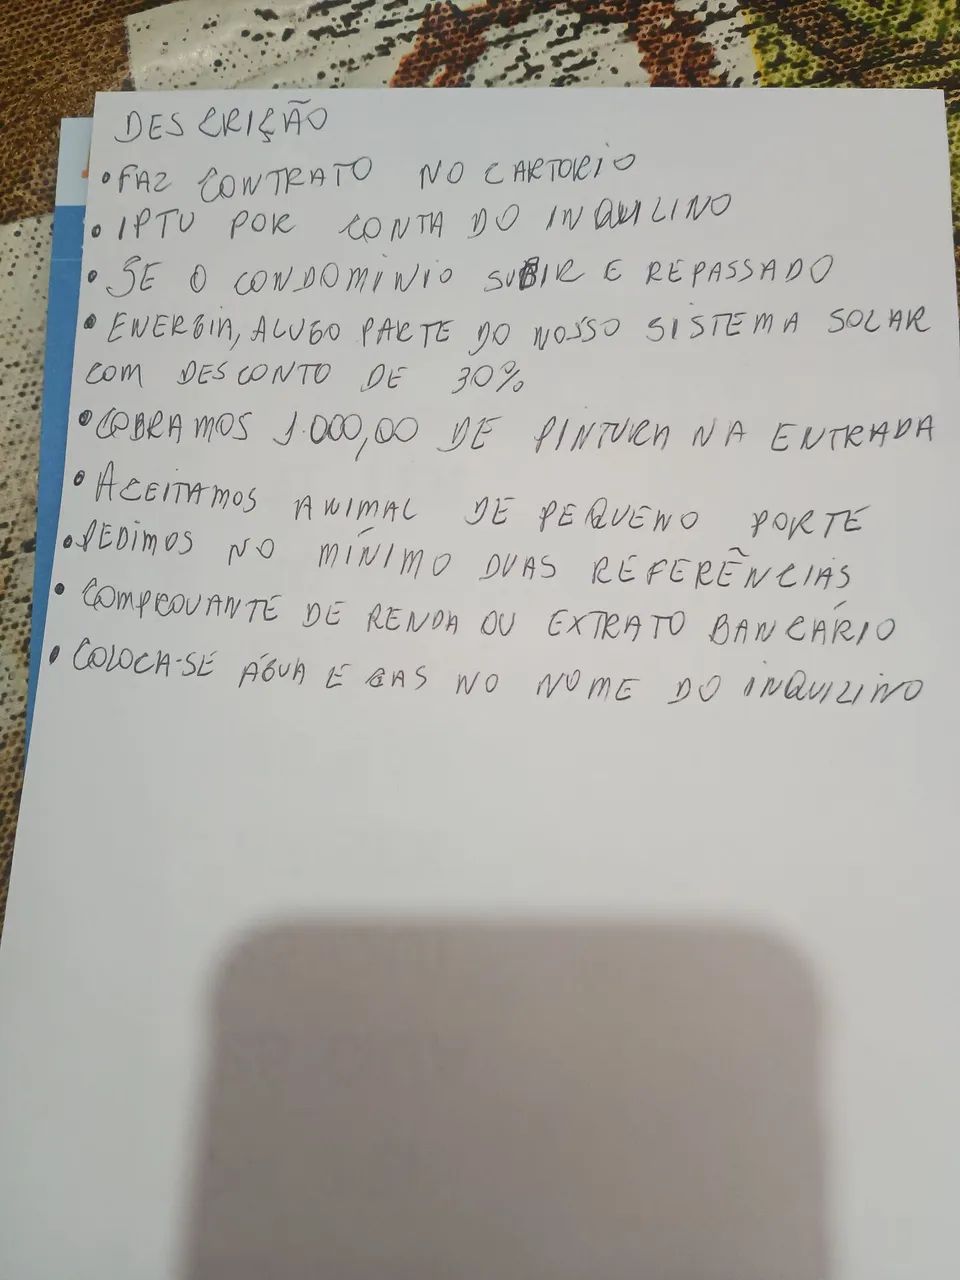 DESCRIÇÃO
• FAZ CONTRATO NO CARTORIO
• IPTU POR CONTA DO INQUILINO
• SE O CONDOMINIO SUBIR E REPASSADO
• ENERGIA, ALUGO PARTE DO NOSSO SISTEMA SOLAR
COM DESCONTO DE 30%
• COBRAMOS 1.000,00 DE PINTURA NA ENTRADA
• ACEITAMOS ANIMAL DE PEQUENO PORTE
• PEDIMOS NO MÍNIMO DUAS REFERÊNCIAS
• COMPROVANTE DE RENDA OU EXTRATO BANCÁRIO
• COLOCA-SE ÁGUA E GAS NO NOME DO INQUILINO